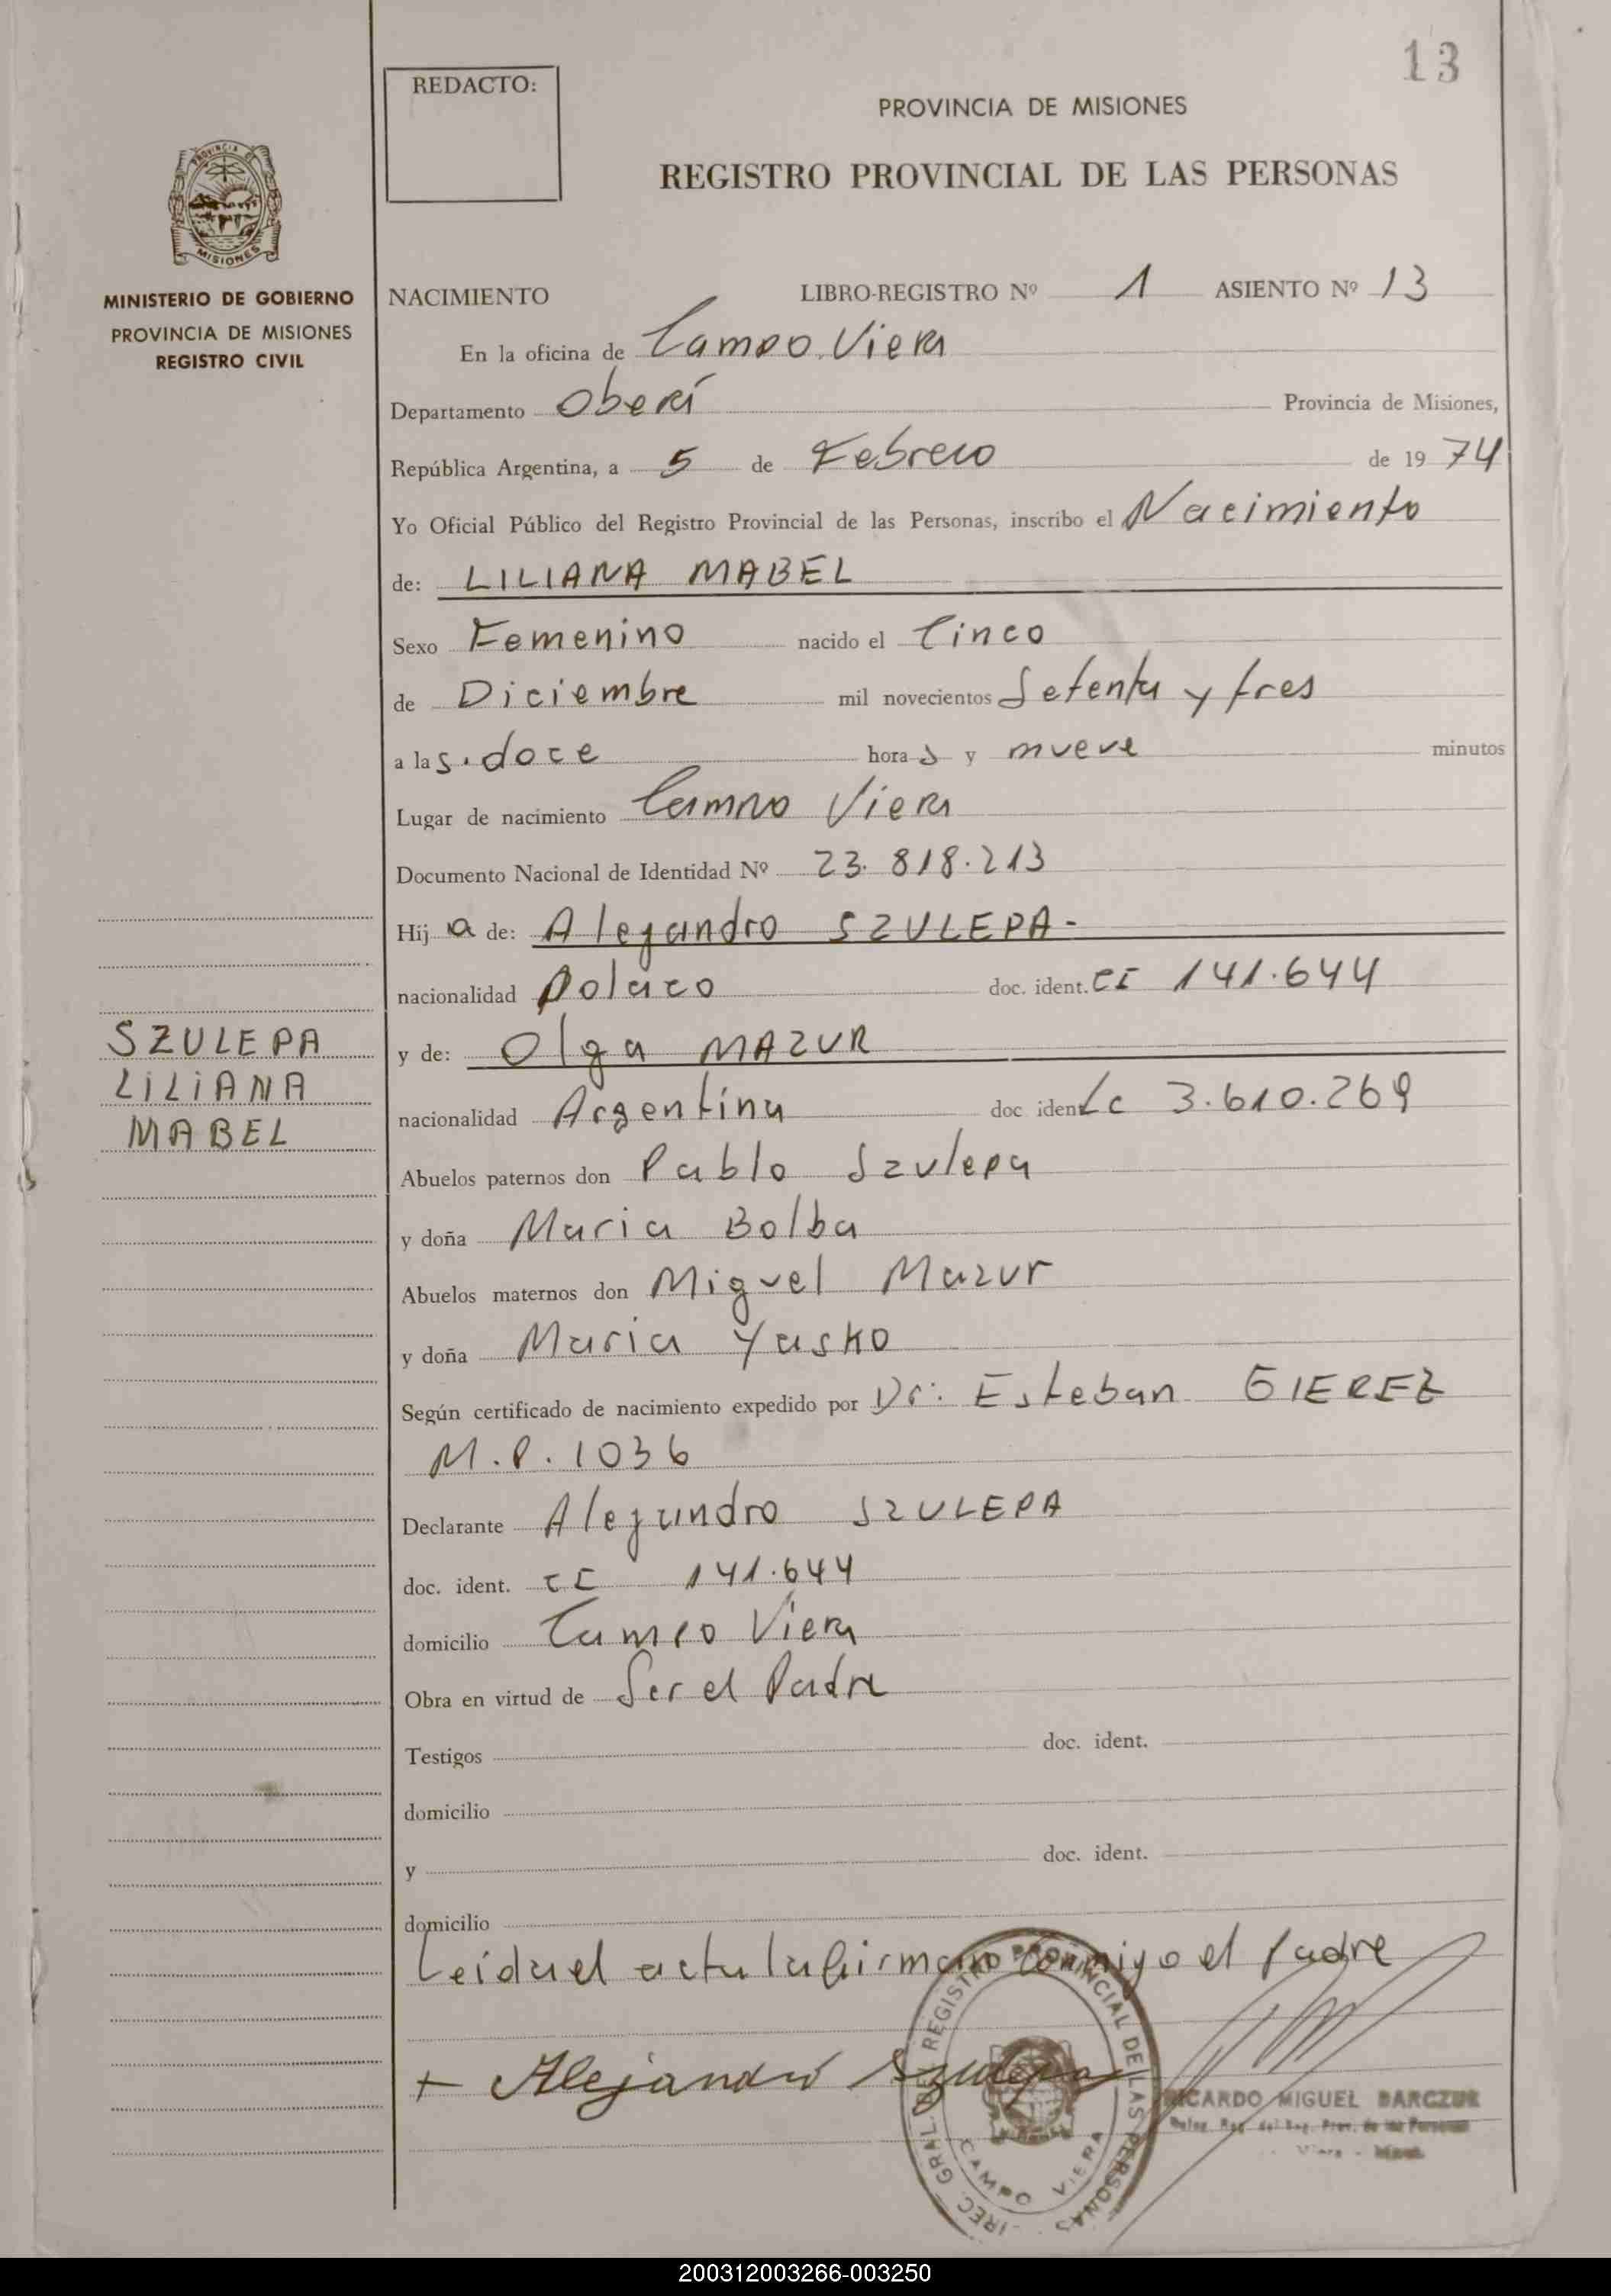 13
REDACTO:
PROVINCIA DE MISIONES
REGISTRO PROVINCIAL DE LAS PERSONAS
PROVINCIA DE
MISIONES
MINISTERIO DE GOBIERNO
PROVINCIA DE MISIONES
REGISTRO CIVIL
NACIMIENTO LIBRO-REGISTRO Nº 1 ASIENTO Nº 13
En la oficina de Campo Viera
Departamento Oberá Provincia de Misiones,
República Argentina, a 5 de Febrero de 19 74
Yo Oficial Público del Registro Provincial de las Personas, inscribo el Nacimiento
de: LILIANA MABEL
Sexo Femenino nacido el Cinco
de Diciembre mil novecientos Setenta y tres
a las doce horas y nueve minutos
Lugar de nacimiento Campo Viera
Documento Nacional de Identidad Nº 23.818.213
Hija de: Alejandro SZULEPA-
nacionalidad Polaco doc. ident. CI 141.644
SZULEPA
LILIANA
MABEL
y de: Olga MAZUR
nacionalidad Argentina doc ident LC 3.610.269
Abuelos paternos don Pablo Szulepa
y doña Maria Bolba
Abuelos maternos don Miguel Mazur
y doña Maria Yasko
Según certificado de nacimiento expedido por Dr: Esteban GIEREZ
M.P. 1036
Declarante Alejandro SZULEPA
doc. ident. CI 141.644
domicilio Campo Viera
Obra en virtud de Ser el Padre
Testigos doc. ident.
domicilio
y doc. ident.
domicilio
Leida el acta la firman conmigo el Padre
+ Alejandro Szulepa
DIREC. GRAL. DEL REGISTRO PROVINCIAL DE LAS PERSONAS
CAMPO VIERA
RICARDO MIGUEL BARCZUK
Reg. del Reg. Prov. de las Personas
Viera - Mnes.
200312003266-003250